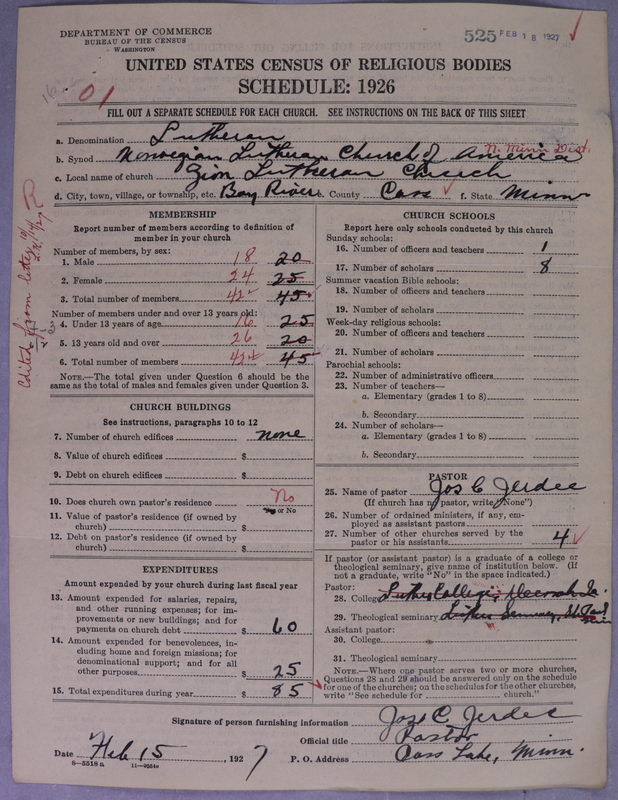 DEPARTMENT OF COMMERCE
BUREAU OF THE CENSUS
WASHINGTON
525 FEB 18 1927
UNITED STATES CENSUS OF RELIGIOUS BODIES
SCHEDULE: 1926
01
FILL OUT A SEPARATE SCHEDULE FOR EACH CHURCH. SEE INSTRUCTIONS ON THE BACK OF THIS SHEET
a. Denomination Lutheran
b. Synod Norwegian Lutheran Church of America N. Minn Dist.
c. Local name of church Zion Lutheran Church
d. City, town, village, or township, etc. Boy River e. County Cass f. State Minn
MEMBERSHIP
Report number of members according to definition of
member in your church
Number of members, by sex:
1. Male 18 20
2. Female 24 25
3. Total number of members 42 45
Number of members under and over 13 years old:
4. Under 13 years of age 16 25
5. 13 years old and over 26 20
6. Total number of members 42 45
NOTE.—The total given under Question 6 should be
same as the total of males and females given under Question 3.
Edited from letter
CHURCH BUILDINGS
See instructions, paragraphs 10 to 12
7. Number of church edifices none
8. Value of church edifices $
9. Debt on church edifices $
10. Does church own pastor's residence No
Yes or No
11. Value of pastor's residence (if owned by
church) $
12. Debt on pastor's residence (if owned by
church) $
EXPENDITURES
Amount expended by your church during last fiscal year
13. Amount expended for salaries, repairs,
and other running expenses; for im-
provements or new buildings; and for
payments on church debt $ 60
14. Amount expended for benevolences, in-
cluding home and foreign missions; for
denominational support; and for all
other purposes $ 25
15. Total expenditures during year $ 85
CHURCH SCHOOLS
Report here only schools conducted by this church
Sunday schools:
16. Number of officers and teachers 1
17. Number of scholars 8
Summer vacation Bible schools:
18. Number of officers and teachers
19. Number of scholars
Week-day religious schools:
20. Number of officers and teachers
21. Number of scholars
Parochial schools:
22. Number of administrative officers
23. Number of teachers—
a. Elementary (grades 1 to 8)
b. Secondary
24. Number of scholars—
a. Elementary (grades 1 to 8)
b. Secondary
PASTOR
25. Name of pastor Jos C Jerdee
(If church has no pastor, write "None")
26. Number of ordained ministers, if any, em-
ployed as assistant pastors
27. Number of other churches served by the
pastor or his assistants 4
If pastor (or assistant pastor) is a graduate of a college or
theological seminary, give name of institution below. (If
not a graduate, write "No" in the space indicated.)
Pastor:
28. College Luther College, Decorah Ia.
29. Theological seminary Luther Seminary, St Paul
Assistant pastor:
30. College
31. Theological seminary
NOTE.—Where one pastor serves two or more churches,
Questions 28 and 29 should be answered only on the schedule
for one of the churches; on the schedules for the other churches,
write "See schedule for church."
Signature of person furnishing information Jos C. Jerdee
Official title Pastor
Date Feb 15, 1927 P. O. Address Cass Lake, Minn.
8—5518 a 11—9034